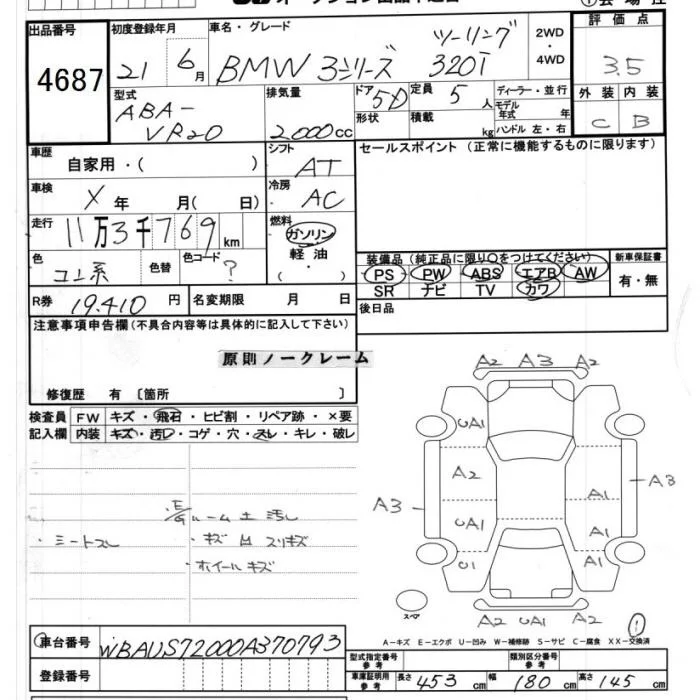 出品番号 4687
初度登録年月 21 6月
車名・グレード BMW 3シリーズ 320i ツーリング
2WD・4WD
評価点 3.5
型式 ABA-VR20
排気量 2,000cc
ドア 5D 形状
定員 5人
積載 kg
ディーラー・並行
モデル年式 年
ハンドル 左・右
外装 C
内装 B
車歴 自家用・( )
シフト AT
セールスポイント (正常に機能するものに限ります)
車検 X年 月(日)
冷房 AC
走行 11万3千769km
燃料 ガソリン 軽油・( )
色 コン系
色替
色コード ?
装備品 (純正品に限り○をつけてください)
PS PW ABS エアB AW
SR ナビ TV カワ
新車保証書 有・無
R券 19.410円
名変期限 月 日
後日品
注意事項申告欄 (不具合内容等は具体的に記入して下さい)
原則ノークレーム
修復歴 有 [箇所 ]
検査員記入欄
FW キズ・飛石・ヒビ割・リペア跡・×要
内装 キズ・汚レ・コゲ・穴・スレ・キレ・破レ
・E/Gルーム 土 汚レ
・シートスレ
・キズ 凹 スリキズ
・ホイールキズ
A2 A3 A2
UA1
A2
UA1
U1
A3
A1
A1
A1
A3
A2 UA1 A2
スペア
①
A-キズ E-エクボ U-凹み W-補修跡 S-サビ C-腐食 XX-交換済
車台番号 WBAUS72000A370793
登録番号
型式指定番号 参考
類別区分番号 参考
車庫証明用 参考 長さ 453cm 幅 180cm 高さ 145cm